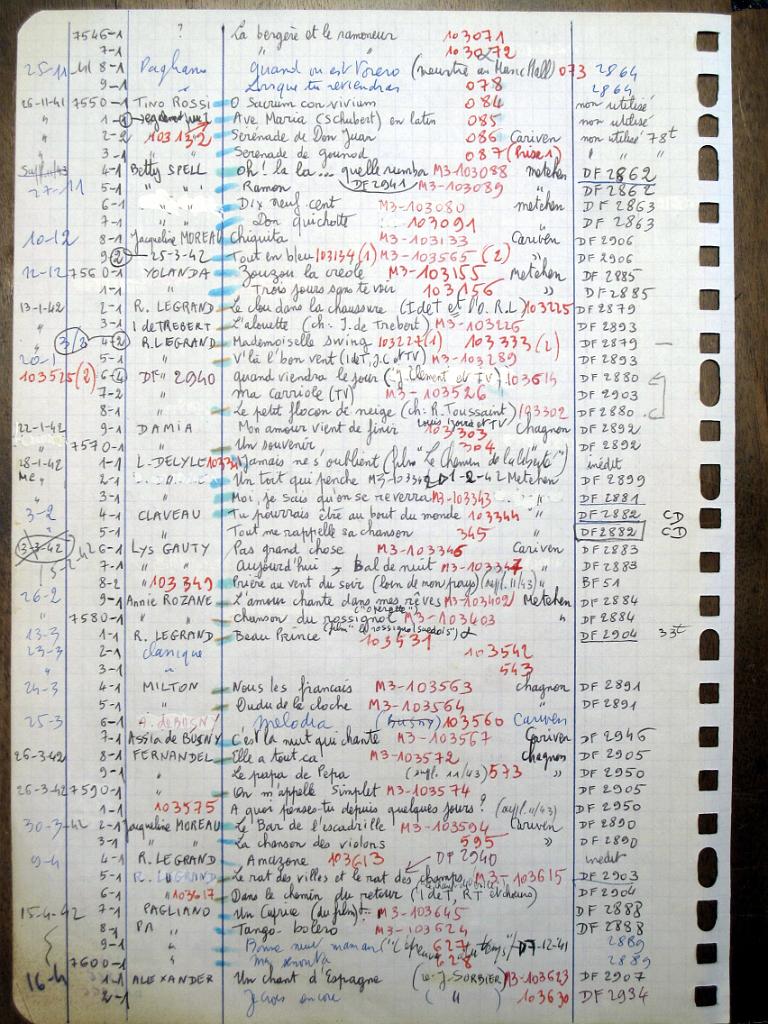 7546-1 ? La bergère et le ramoneur 103071
7-1 " " " 103072
25-11-41 8-1 Pagliano quand on est Torero (meurtre au Music Hall) 073 2864
9-1 " Lorsque tu reviendras 078 2864
26-11-41 7550-1 TINO ROSSI O Sacrum convivium 084 non utilisé
" 1-1 Ave Maria (Schubert) en latin 085 non utilisé
" 2-2 103132 Serenade de Don Juan 086 Cariven non utilisé 78t
" 3-1 Serenade de gounod 087 (prise 1) " " "
4-1 Betty SPELL Oh! la la... quelle rumba M3-103088 metehen DF 2862
27-11 5-1 " " Ramon DF 2941 M3-103089 " DF 2862
6-1 " " Dix neuf cent M3-103080 metchen DF 2863
7-1 " " Don quichotte 103091 DF 2863
10-12 8-1 Jaqueline MOREAU Chiquita M3-103133 Cariven DF 2906
9-2 25-3-42 Tout en bleu 103134 (1) M3-103565 (2) " DF 2906
12-12 7560-1 YOLANDA Zouzou la creole M3-103155 Metchen DF 2885
1-1 " Trois jours sans te voir 103156 " DF 2885
13-1-42 2-1 R. LEGRAND Le clou dans la chaussure (I de T et Vo. R.L) 103225 DF 2879
" 3-1 I de TREBERT L'alouette (ch. I. de Trebert) M3-103226 DF 2893
3/3 4-2 R. LEGRAND Mademoiselle swing 103227 (1) 103333 (2) DF 2879 –
20-1 5-1 " V'là l'bon vent (I de T, J.C et TV) M3-103289 DF 2893
103525 (2) 6-4 DF 2940 quand viendra le jour (J. Clement et TV) 103614 DF 2880
7-2 " ma carriole (TV) M3-103526 DF 2903
8-1 " Le petit flocon de neige (ch. R. Toussaint) 103302 DF 2880
22-1-42 9-1 DAMIA Mon amour vient de finir 103303 Chagnon DF 2892
" 7570-1 " Un souvenir 304 " DF 2892
28-1-42 1-1 L. DELYLE Jamais ne s'oublient (film "Le Chemin de la liberté") inédit
2-1 Un toit qui penche 1-2-42 Metchen DF 2899
" 3-1 " Moi, je sais qu'on se reverra M3-103343 " DF 2881
3-2 4-1 CLAVEAU Tu pourrais être au bout du monde 103344 " DF 2882 CD
" 5-1 " Tout me rappelle sa chanson 345 " DF 2882 CD
13-3-42 6-1 LYS GAUTY Pas grand chose M3-103346 Cariven DF 2883
7-1 " Aujourd'hui, Bal de nuit M3-103347 " DF 2883
8-2 " 103349 Prière au vent du soir (loin de mon pays) (sup. 11/43) " BF 51
26-2 9-1 Annie ROZANE L'amour chante dans mes rêves M3-103402 Metchen DF 2884
" 7580-1 " chanson du rossignol M3-103403 " DF 2884
13-3 1-1 R. LEGRAND Beau Prince (film "le rossignol suedois") 103531 DF 2904 33t
23-3 2-1 classique 103542
3-1 " 543
24-3 4-1 MILTON Nous les français M3-103563 chagnon DF 2891
5-1 " Dudu de le cloche M3-103564 " DF 2891
25-3 6-1 A. de BUSNY melodia (BUSNY) 103560 Cariven
7-1 Assia de BUSNY C'est la nuit qui chante M3-103567 Cariven DF 2946
26-3-42 8-1 FERNANDEL Elle a tout ca! M3-103572 chagnon DF 2905
9-1 " Le papa de Pepa (supl. 11/43) 573 " DF 2950
26-3-42 7590-1 " On m'appelle Simplet M3-103574 DF 2905
1-1 103575 A quoi penses-tu depuis quelques jours? (supl. 11/43) DF 2950
30-3-42 2-1 Jacqueline MOREAU Le Bar de l'escadrille M3-103594 Cariven DF 2890
3-1 " " La chanson des violons 595 " DF 2890
9-4 4-1 R. LEGRAND Amazone 103613 DF 2940 inedit
5-1 R. LEGRAND Le rat des villes et le rat des champs M3-103615 DF 2903
6-1 " 103617 Dans le chemin du retour (I de T, RT et chœurs) DF 2904
15-4-42 7-1 PAGLIANO Un Caprice (du film) M3-103645 DF 2888
8-1 PA " Tango-bolero M3-103624 DF 2888
9-1 " Bonne nuit maman 627 17-12-41 2889
7600-1 " 628 2889
16-4 1-1 ALEXANDER Un chant d'Espagne (v. J. SORBIER) M3-103623 DF 2907
2-1 Je crois encore ( " ) 103630 DF 2934